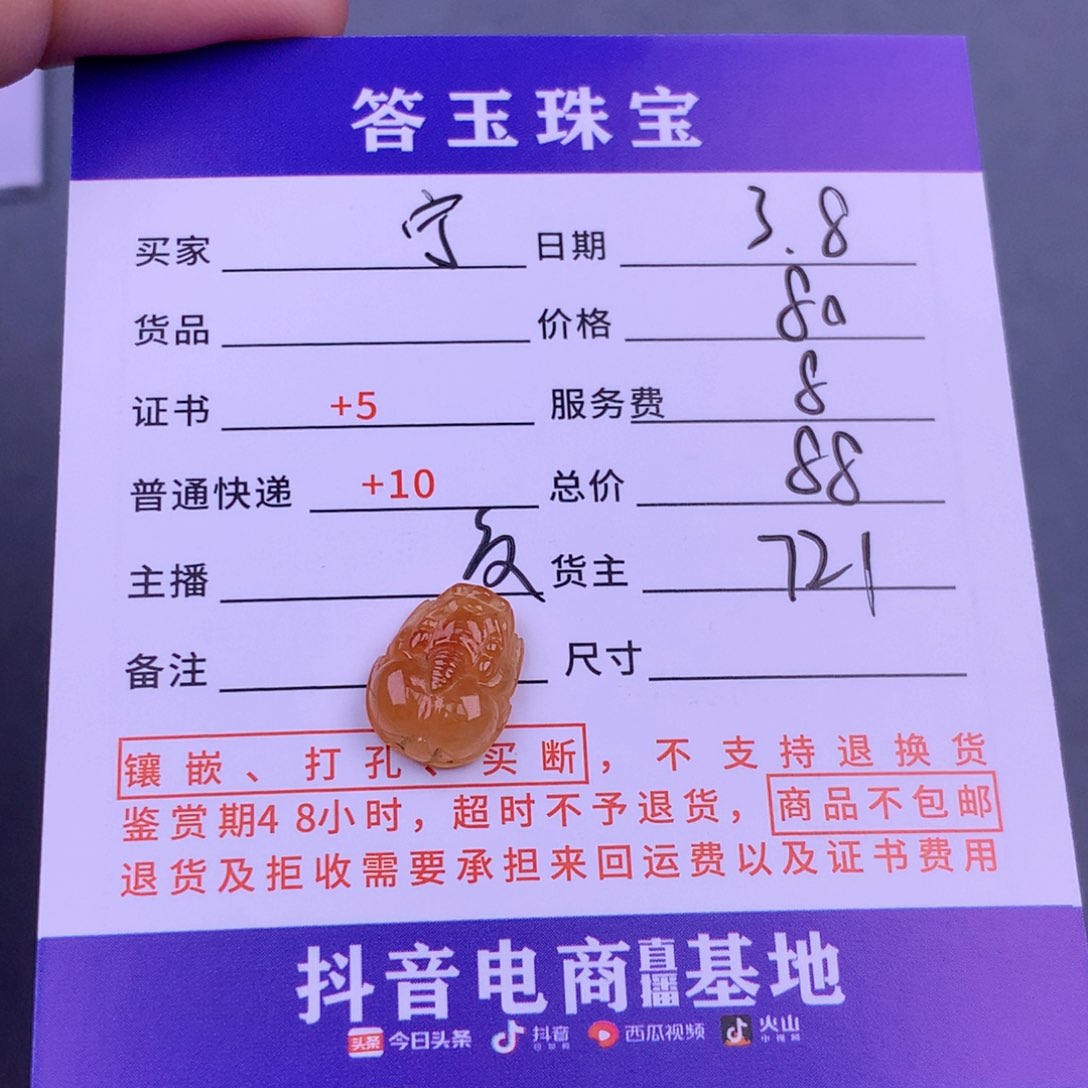 答玉珠宝
买家 宁 日期 3.8
货品 价格 80
证书 +5 服务费 8
普通快递 +10 总价 88
主播 货主 721
备注 尺寸
镶嵌、打孔、买断，不支持退换货
鉴赏期48小时，超时不予退货，商品不包邮
退货及拒收需要承担来回运费以及证书费用
抖音电商直播基地
头条 今日头条 抖音 西瓜视频 火山